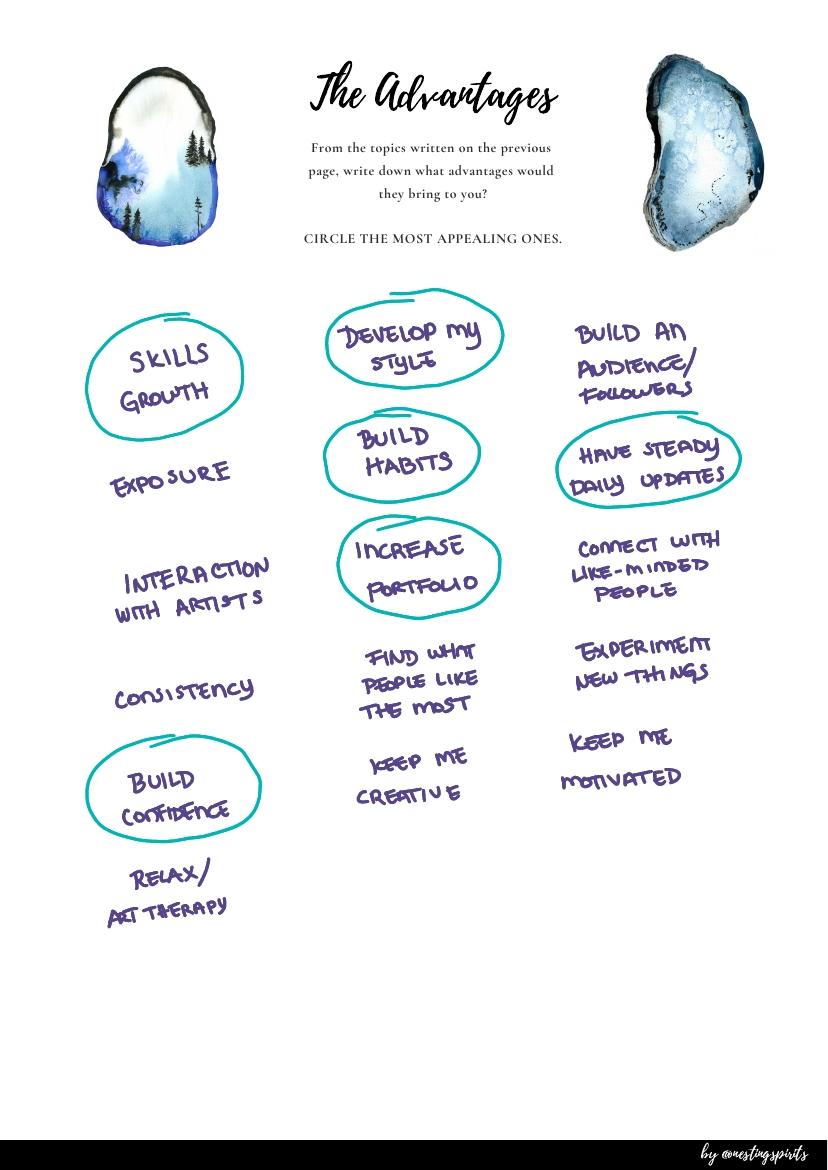 The Advantages
From the topics written on the previous
page, write down what advantages would
they bring to you?
CIRCLE THE MOST APPEALING ONES.
SKILLS
GROWTH
EXPOSURE
INTERACTION
WITH ARTISTS
CONSISTENCY
BUILD
CONFIDENCE
RELAX/
ART THERAPY
DEVELOP MY
STYLE
BUILD
HABITS
INCREASE
PORTFOLIO
FIND WHAT
PEOPLE LIKE
THE MOST
KEEP ME
CREATIVE
BUILD AN
AUDIENCE/
FOLLOWERS
HAVE STEADY
DAILY UPDATES
CONNECT WITH
LIKE-MINDED
PEOPLE
EXPERIMENT
NEW THINGS
KEEP ME
MOTIVATED
by @nestingspirits